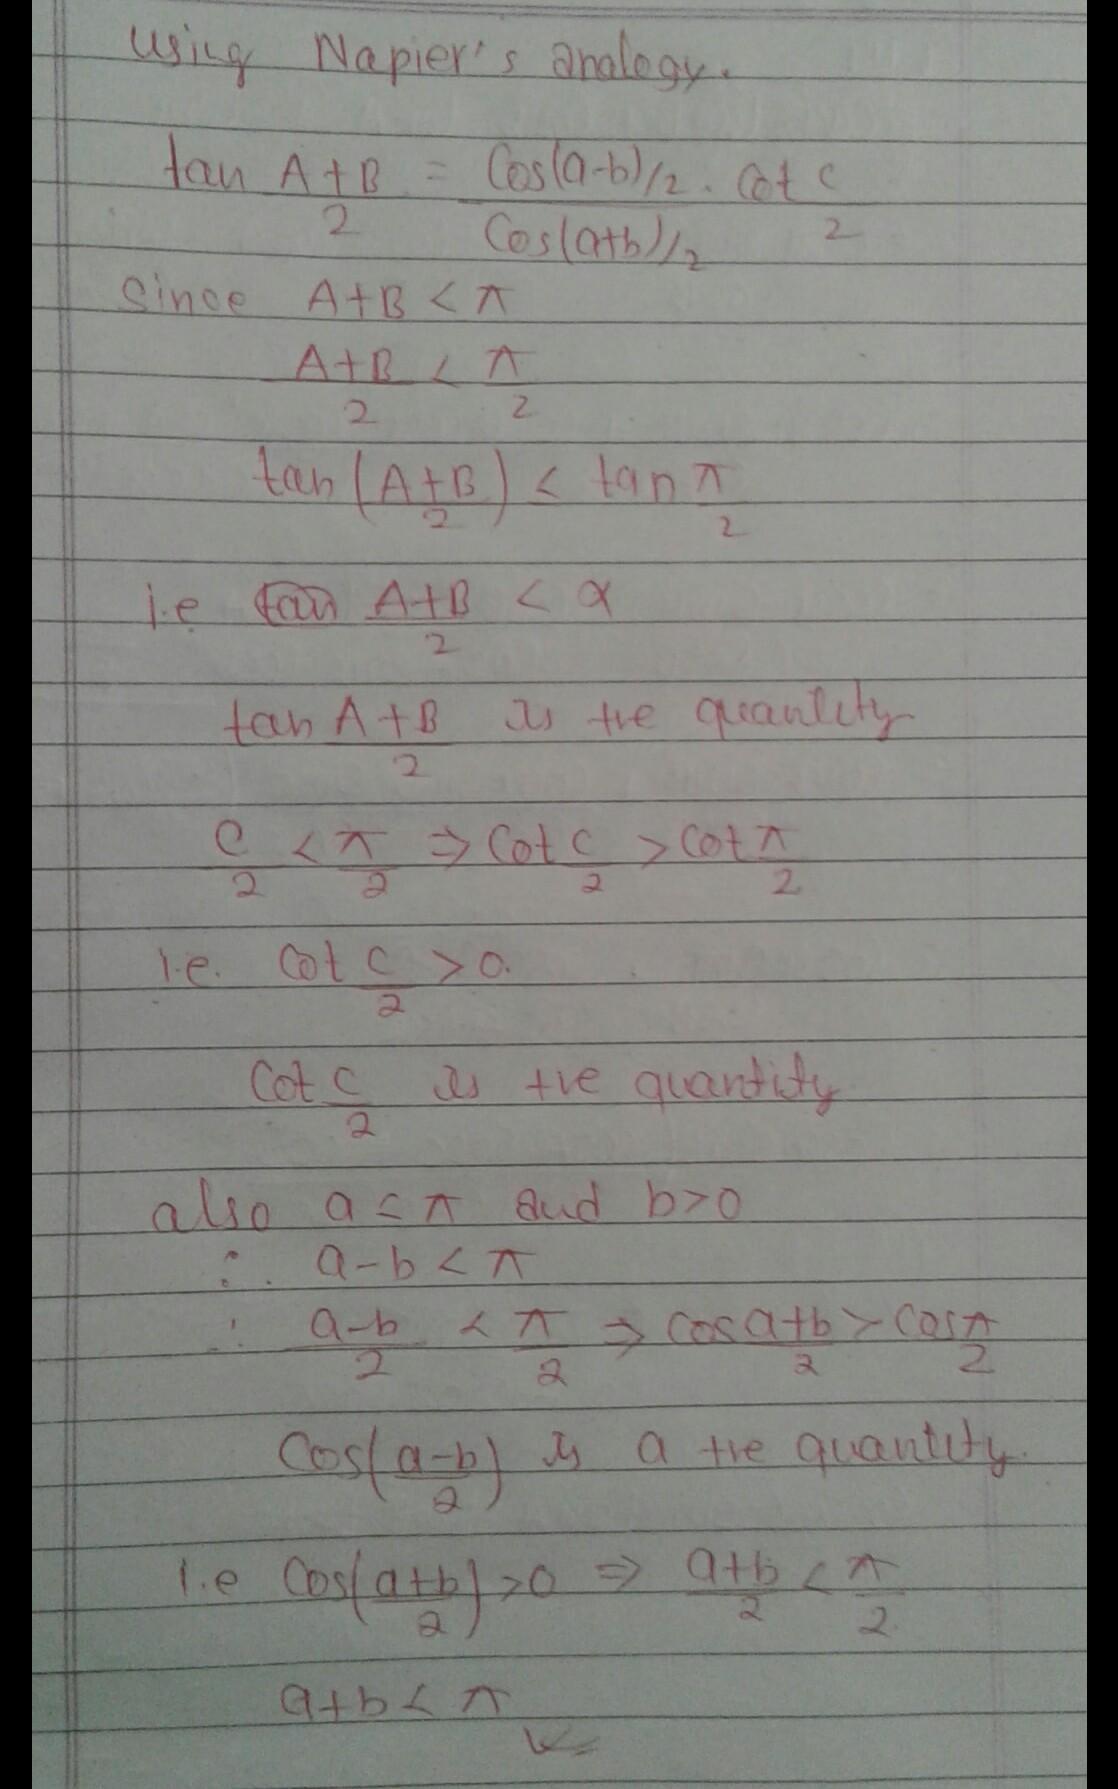 using Napier's analogy.
tan A+B/2 = Cos(a-b)/2 . Cot C/2
Cos(a+b)/2
since A+B < π
A+B/2 < π/2
tan (A+B/2) < tan π/2
i.e tan A+B/2 < α
tan A+B/2 is +ve quantity
C/2 < π/2 ⇒ Cot C/2 > cot π/2
i.e. Cot C/2 > 0.
Cot C/2 is +ve quantity
also a < π and b>0
∴ a-b < π
∴ a-b/2 < π/2 ⇒ Cos a+b/2 > Cos π/2
Cos(a-b/2) is a +ve quantity.
i.e Cos(a+b/2) >0 ⇒ a+b/2 < π/2
a+b < π